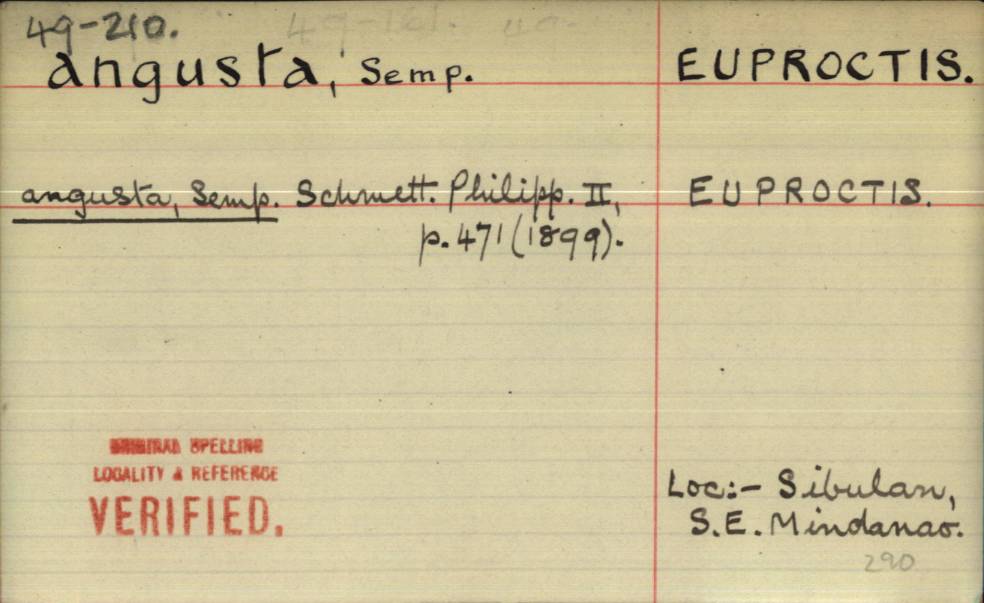 49-210.
angusta, Semp. EUPROCTIS.
angusta, Semp. Schmett. Philipp. II, EUPROCTIS.
p. 471 (1899).
ORIGINAL SPELLING
LOCALITY & REFERENCE
VERIFIED.
Loc:- Sibulan,
S.E. Mindanao.
290